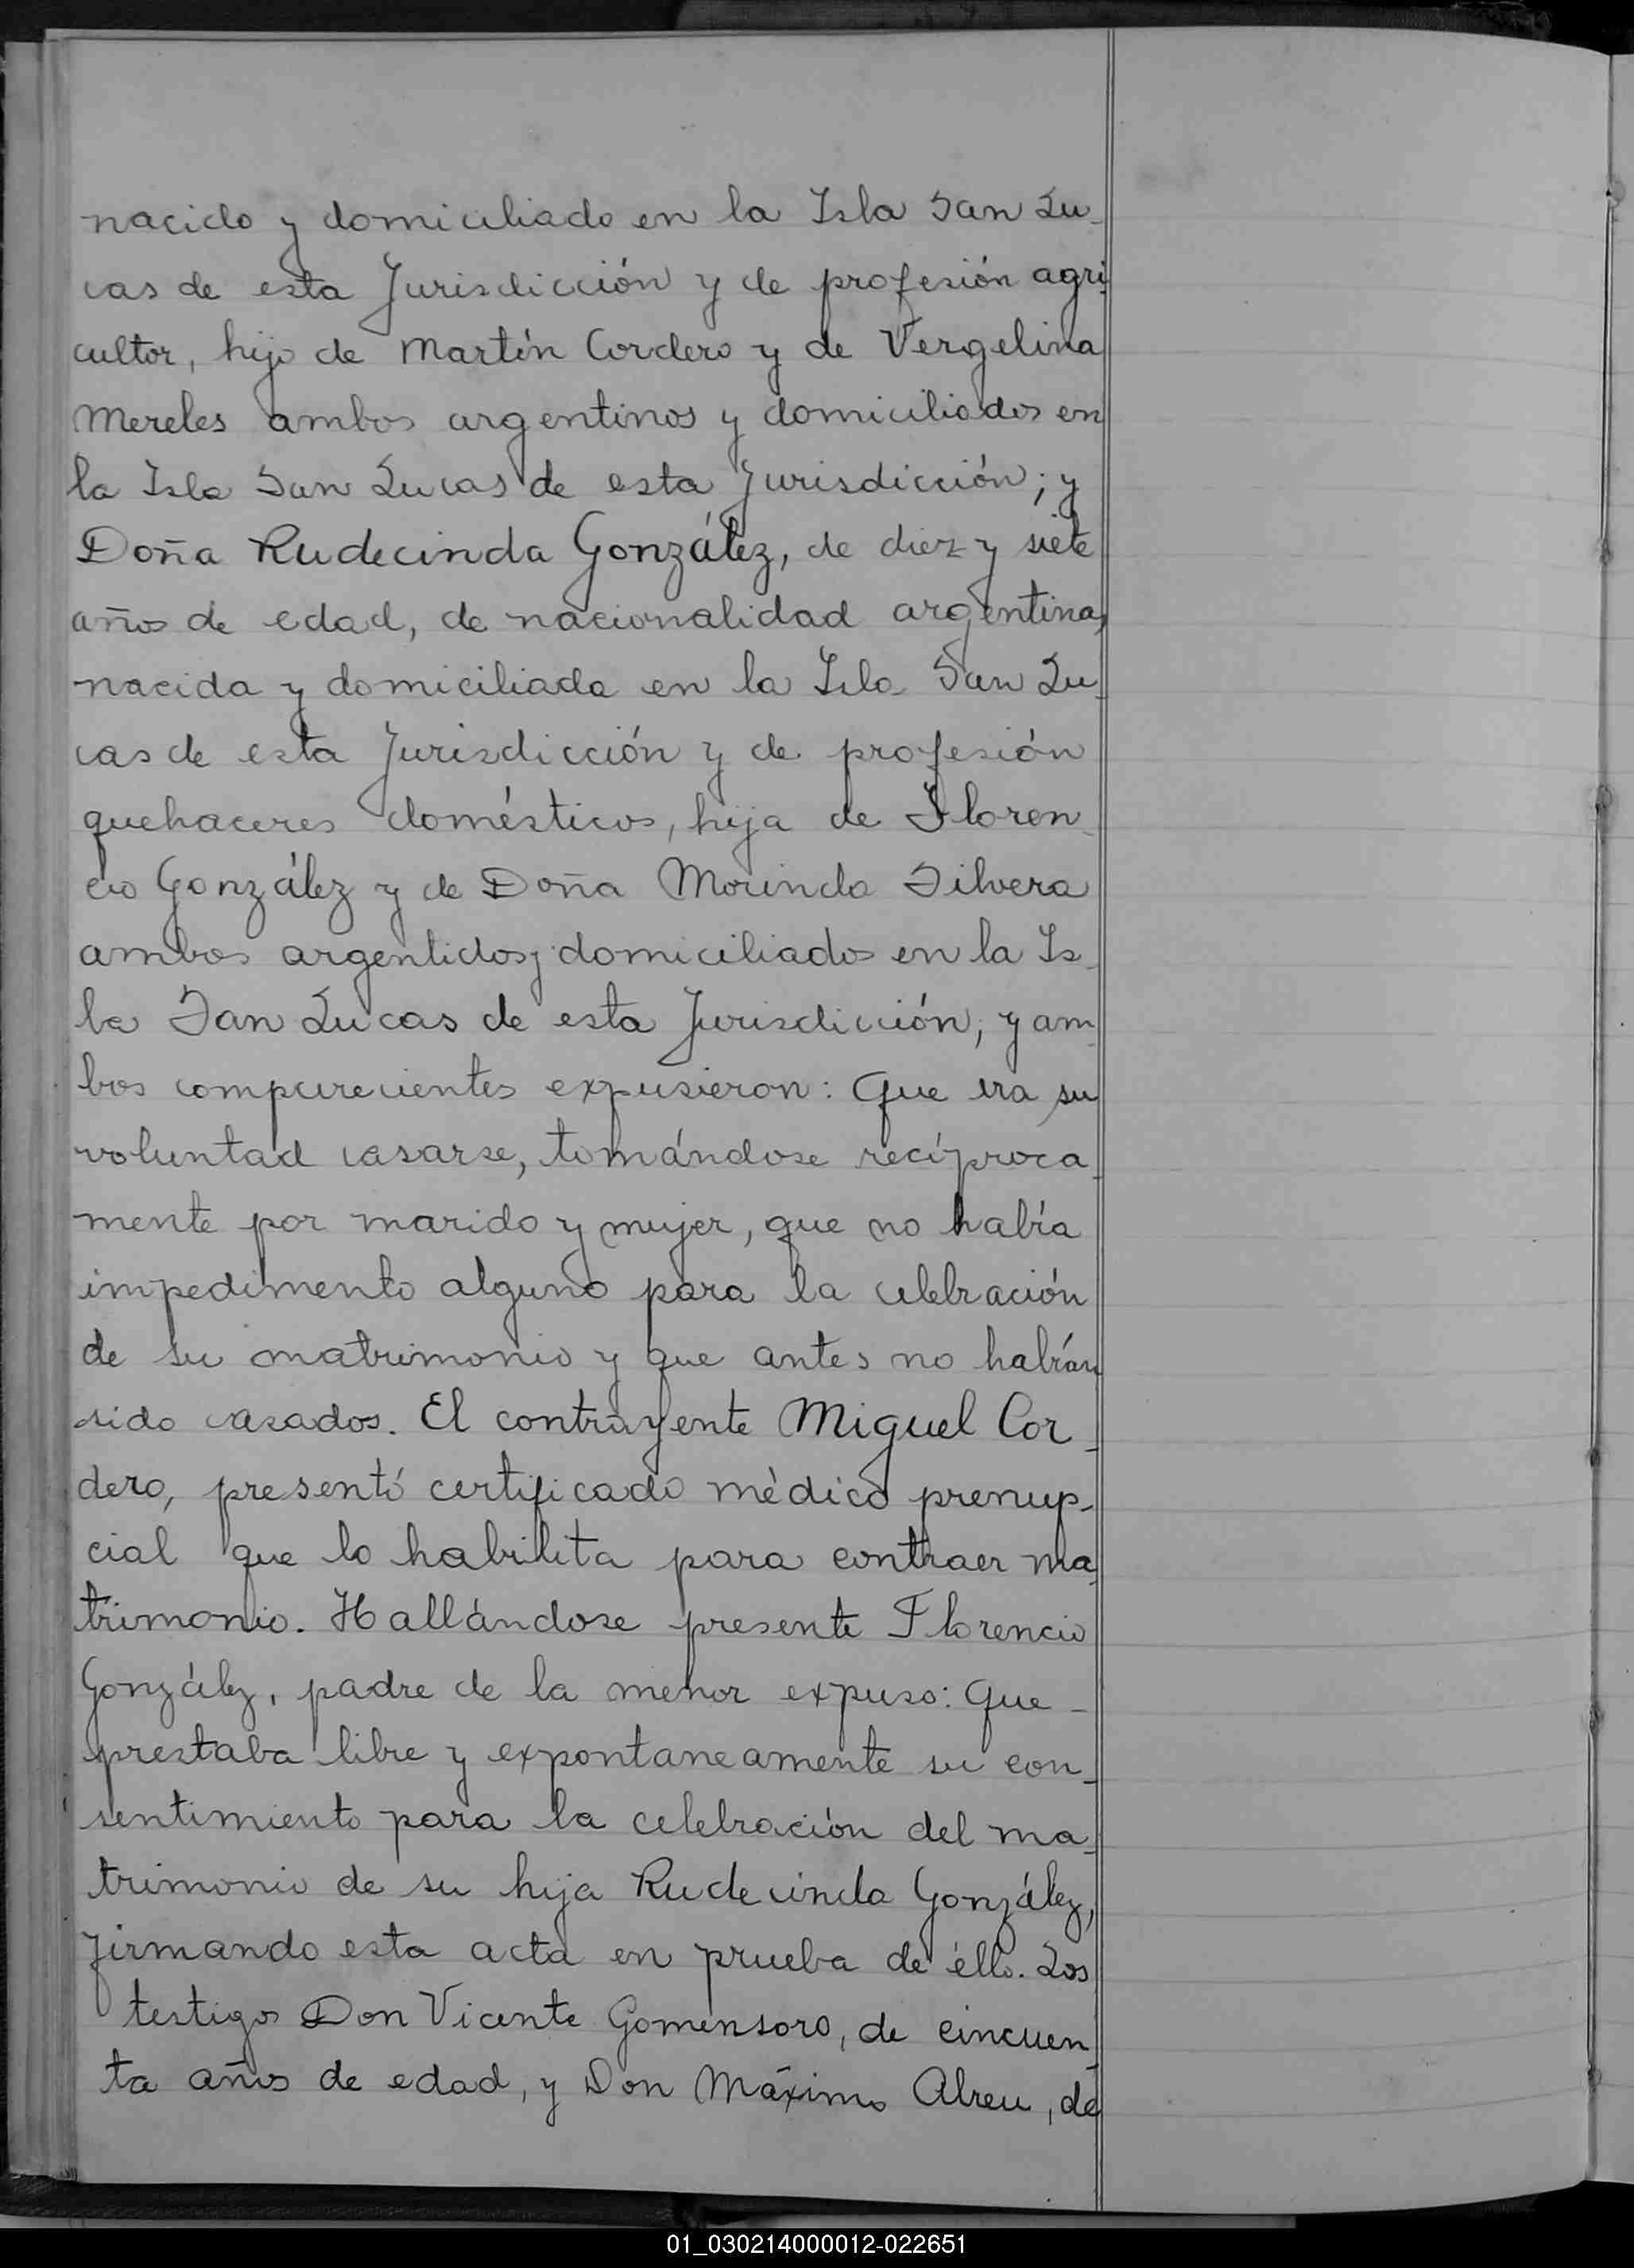 nacido y domiciliado en la Isla San Lu-
cas de esta Jurisdicción y de profesión agri-
cultor, hijo de Martín Cordero y de Vergelina
Mereles ambos argentinos y domiciliados en
la Isla San Lucas de esta Jurisdicción; y
Doña Rudecinda González, de diez y siete
años de edad, de nacionalidad argentina,
nacida y domiciliada en la Isla San Lu-
cas de esta Jurisdicción y de profesión
quehaceres domésticos, hija de Floren-
cio González y de Doña Morinda Silvera
ambos argentidos y domiciliados en la Is-
la San Lucas de esta Jurisdicción; y am-
bos comparecientes expusieron: Que era su
voluntad casarse, tomándose recíproca-
mente por marido y mujer, que no había
impedimento alguno para la celebración
de su matrimonio y que antes no habían
sido casados. El contrayente Miguel Cor-
dero, presentó certificado médico prenup-
cial que lo habilita para contraer ma-
trimonio. Hallándose presente Florencio
González, padre de la menor expuso: Que -
prestaba libre y expontaneamente su con-
sentimiento para la celebración del ma-
trimonio de su hija Rudecinda González,
firmando esta acta en prueba de éllo. Los
testigos Don Vicente Gomensoro, de cincuen-
ta años de edad, y Don Máximo Abreu, de
01_030214000012-022651